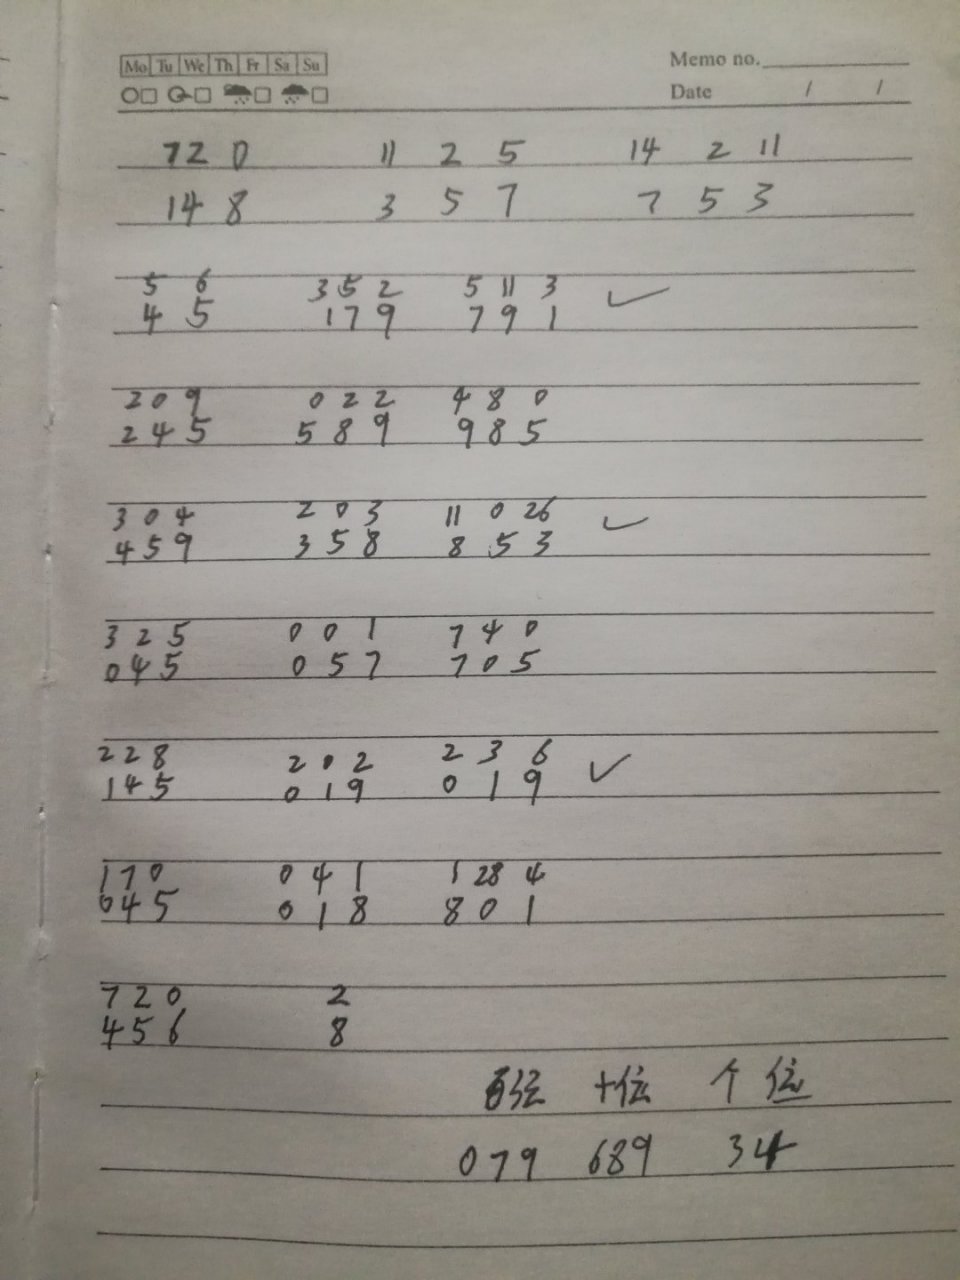 Mo Tu We Th Fr Sa Su
Memo no.
Date / /
720 11 2 5 14 2 11
14 8 3 5 7 7 5 3
5 6 3 5 2 5 11 3
4 5 1 7 9 7 9 1
2 0 9 0 2 2 4 8 0
2 4 5 5 8 9 9 8 5
3 0 4 2 0 3 11 0 26
4 5 9 3 5 8 8 5 3
3 2 5 0 0 1 7 4 0
0 4 5 0 5 7 7 0 5
2 2 8 2 0 2 2 3 6
1 4 5 0 1 9 0 1 9
1 7 0 0 4 1 1 28 4
0 4 5 0 1 8 8 0 1
7 2 0 2
4 5 6 8
百位 十位 个位
079 689 34